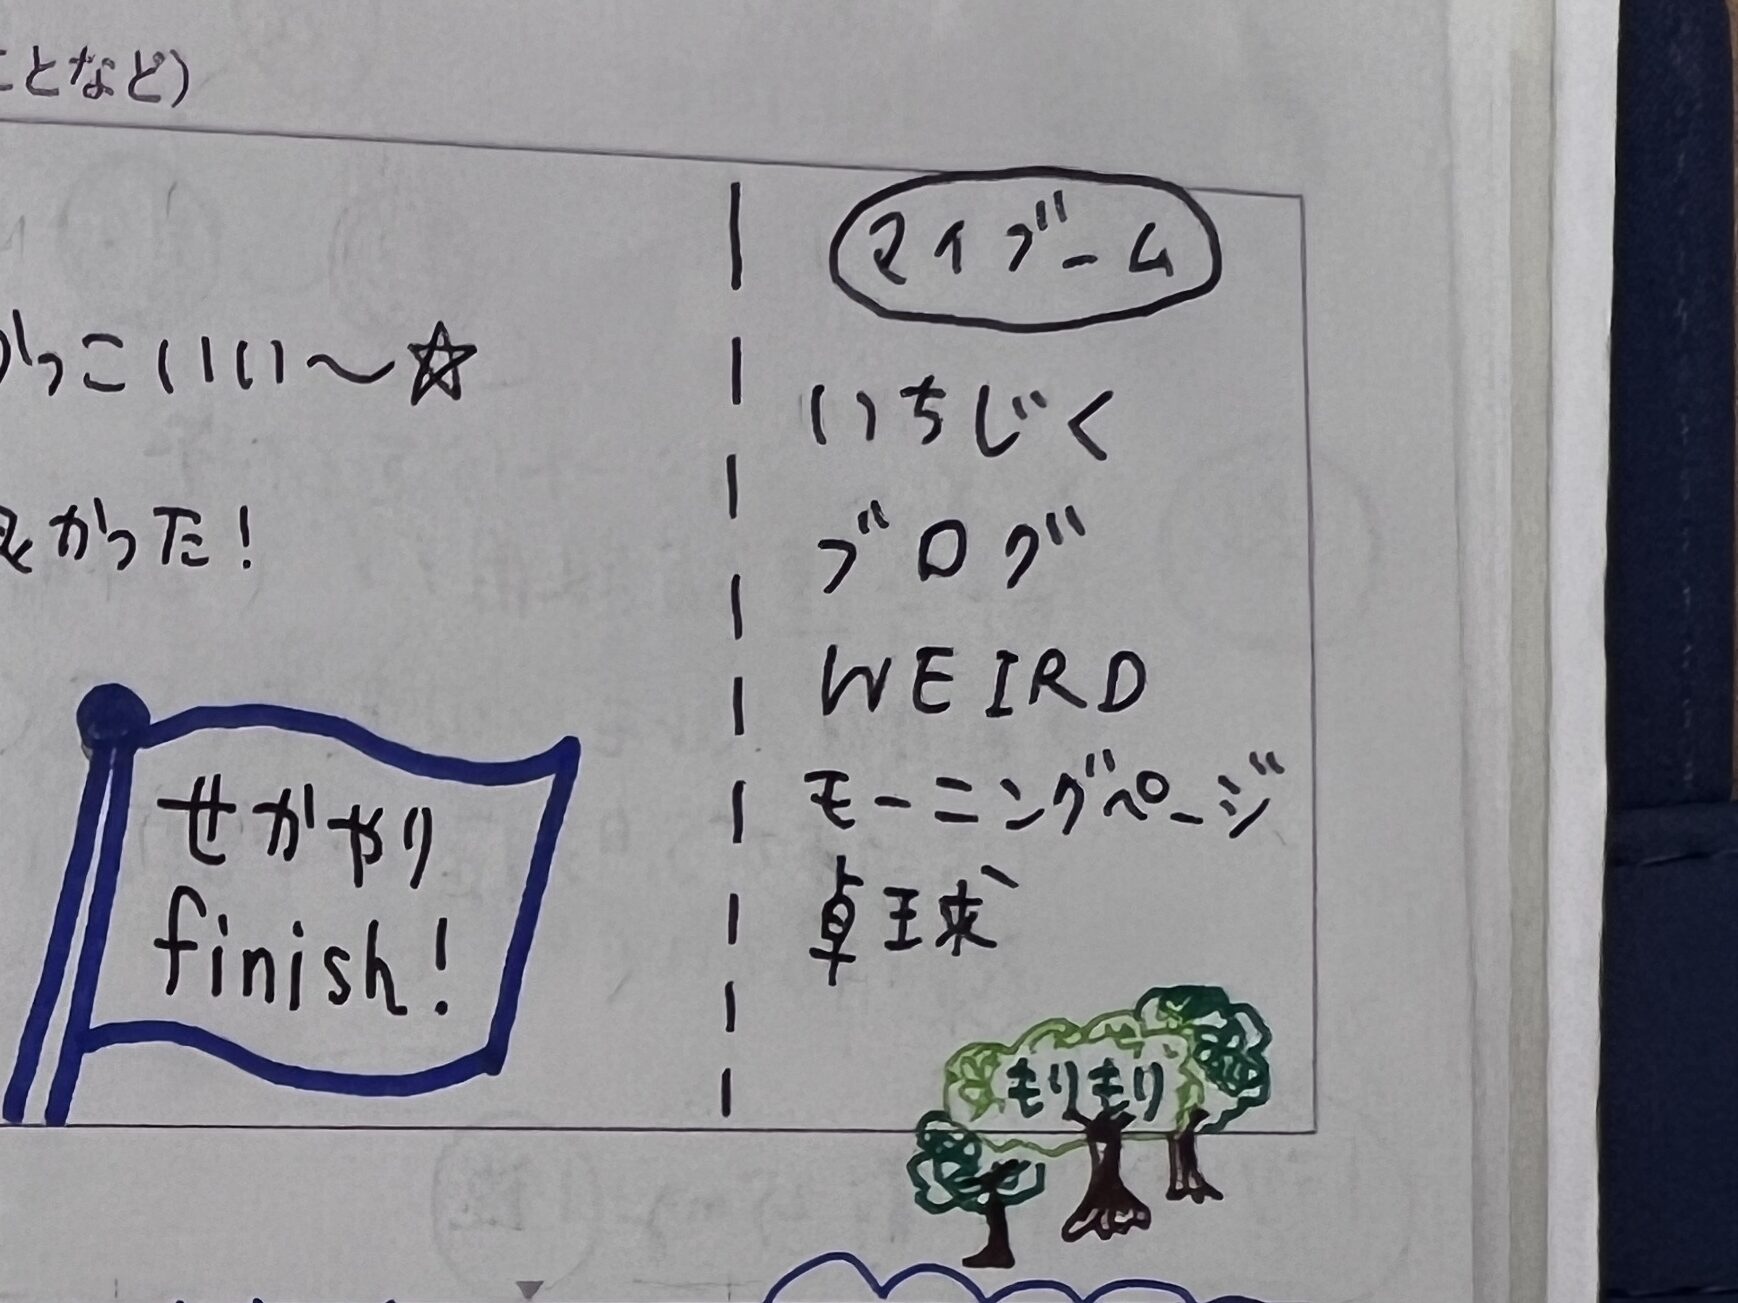 ことなど)
かっこいいい〜☆
良かった!
せかやり
finish!
マイブーム
いちじく
ブログ
WEIRD
モーニングページ
卓球
もりもり